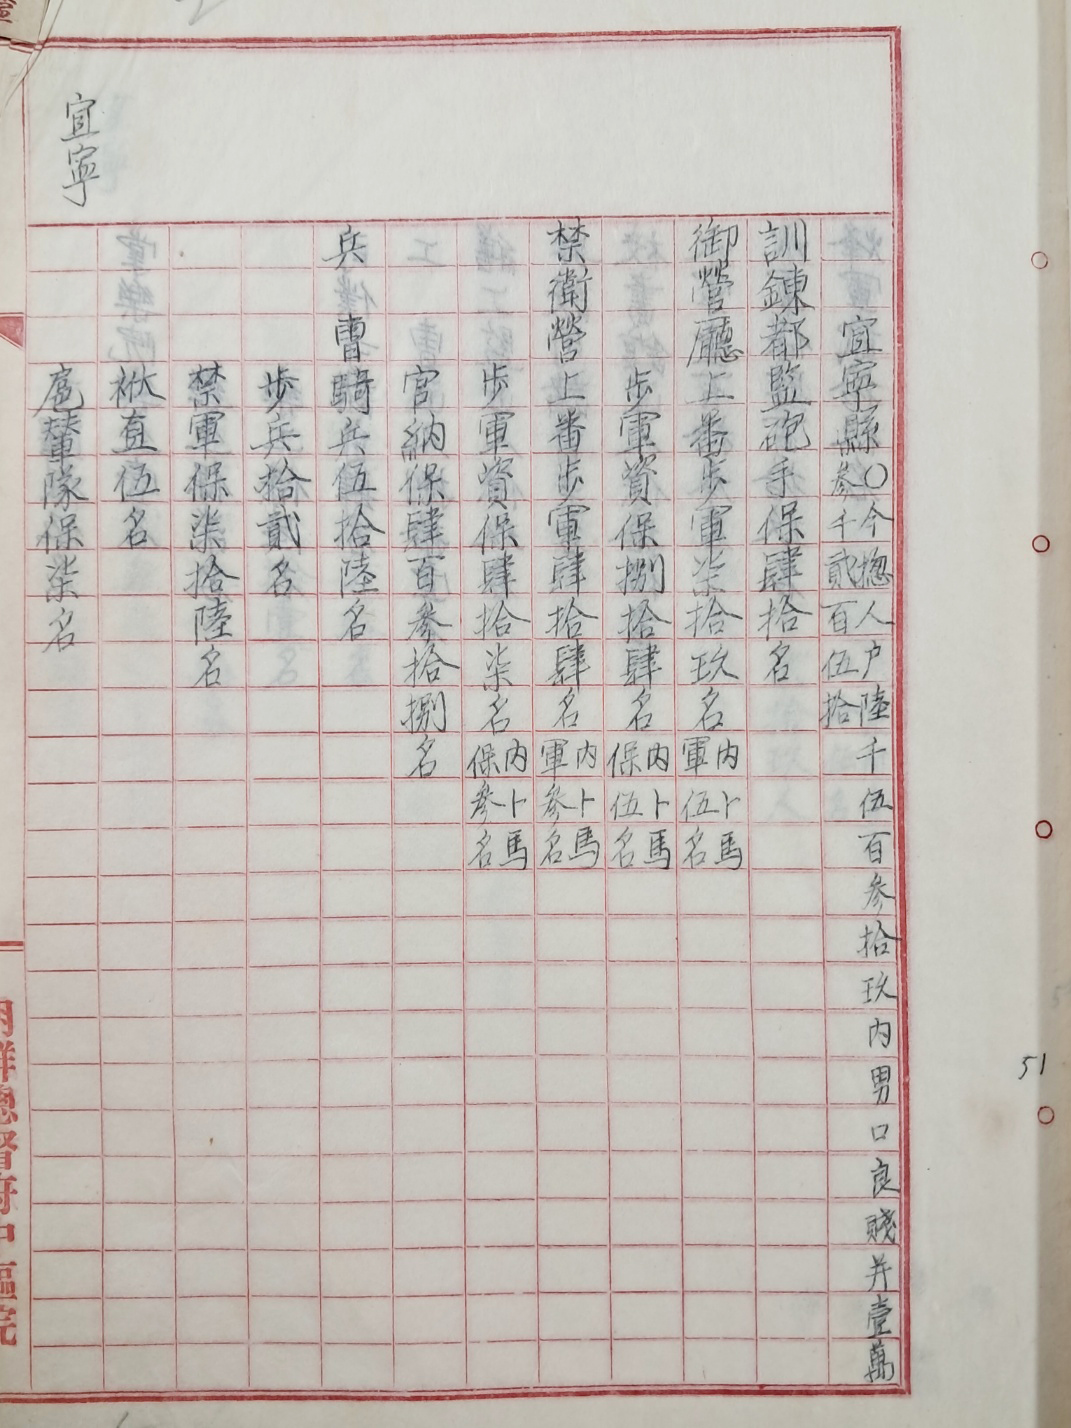 宜寧縣○今摠人户陸千伍百參拾玖內男口良賤并壹萬
參千貳百伍拾
訓鍊都監砲手保肆拾名
御營廳上番步軍柒拾玖名內卜馬軍伍名
步軍資保捌拾肆名內卜馬保伍名
禁衛營上番步軍肆拾肆名內卜馬軍參名
步軍資保肆拾柒名內卜馬保參名
官納保肆百參拾捌名
兵曹騎兵伍拾陸名
步兵拾貳名
禁軍保柒拾陸名
杖直伍名
扈輦隊保柒名
宜寧
朝鮮總督府中樞院
51